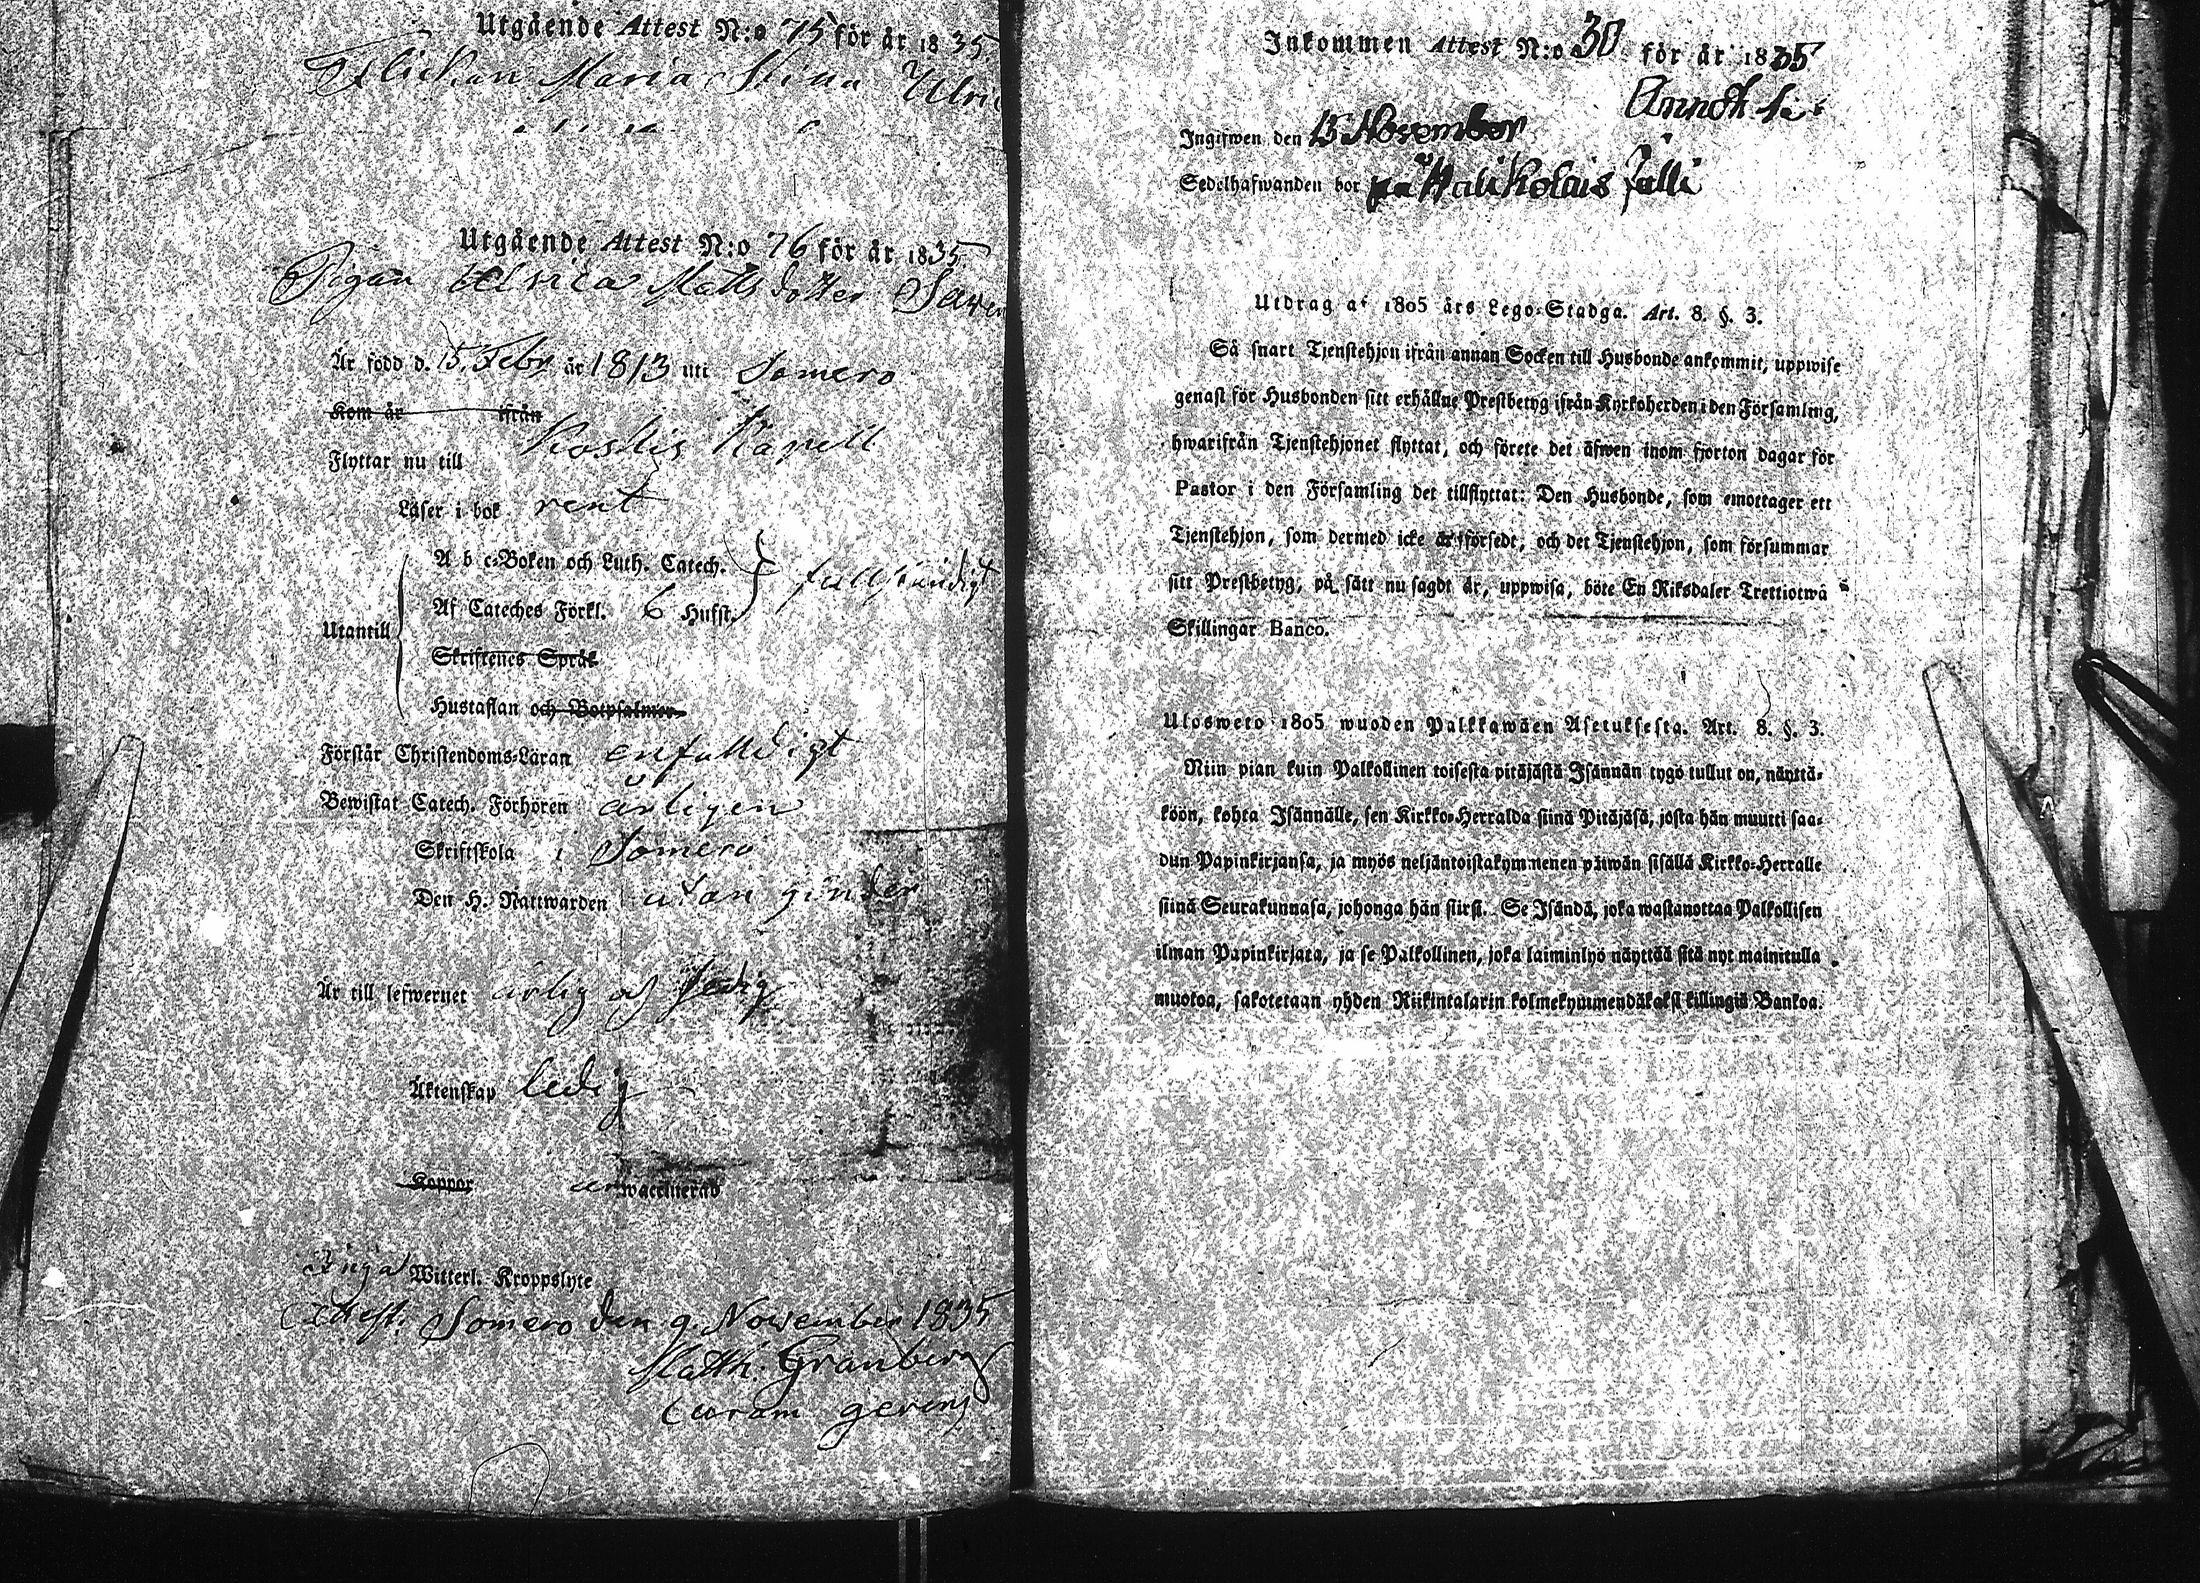 Utgående Attest N:o 75 för år 1835.
Flickan Maria Stina Ulri
Utgående Attest N:o 76 för år 1835.
Pigan Ulrica Matts dotter
Är född d. 15 Febr år 1813 uti Somero
Kom år ifrån
Flyttar nu till Koskis Kapell
Läser i bok rent
Utantill
A b c-Boken och Luth. Catech.
Af Cateches Förkl. 6 Hufst. fullständigt
Skriftenes Språk
Hustaflan och Botpsalmer
Förstår Christendoms-Läran enfalldigt
Bewistat Catech. Förhören årligen
Skriftskola i Somero
Den H. Nattwarden utan hinder
Är till lefwernet ärlig och sedig
Äktenskap ledig
Koppor är waccinerad
Inga Witterl. Kroppslyte
Attest. Somero den 9. November 1835
Matth. Granberg
Curam gerens
Inkommen Attest N:o 30 för år 1835
Ingifwen den 15 November
Sedelhafwanden bor på
Utdrag af 1805 års Lego-Stadga. Art. 8. §. 3.
Så snart Tjenstehjon ifrån annan Socken till Husbonde ankommit, uppwise
genast för Husbonden sitt erhållne Prestbetyg ifrån Kyrkoherden i den Församling,
hwarifrån Tjenstehjonet flyttat, och förete det äfwen inom fjorton dagar för
Pastor i den Församling det tillflyttat: Den Husbonde, som emottager ett
Tjenstehjon, som dermed icke är försedt, och det Tjenstehjon, som försummar
sitt Prestbetyg, på sätt nu sagdt är, uppwisa, böte En Riksdaler Trettiotwå
Skillingar Banco.
Ulosweto 1805 wuoden Palkkawäen Asetuksesta. Art. 8. §. 3.
Niin pian kuin Palkollinen toisesta pitäjästä Isännän tygö tullut on, näyttä-
köön, kohta Isännälle, sen Kirkko-Herralda siinä Pitäjäsä, josta hän muutti saa-
dun Papinkirjansa, ja myös neljäntoistakymmenen päiwän sisällä Kirkko-Herralle
siinä Seurakunnasa, johonga hän siirsi. Se Isändä, joka wastanottaa Palkollisen
ilman Papinkirjata, ja se Palkollinen, joka laiminlyö näyttää sitä nyt mainitulla
muotoa, sakotetaan yhden Riikintalarin kolmekymmendäkaksi killingiä Bankoa.